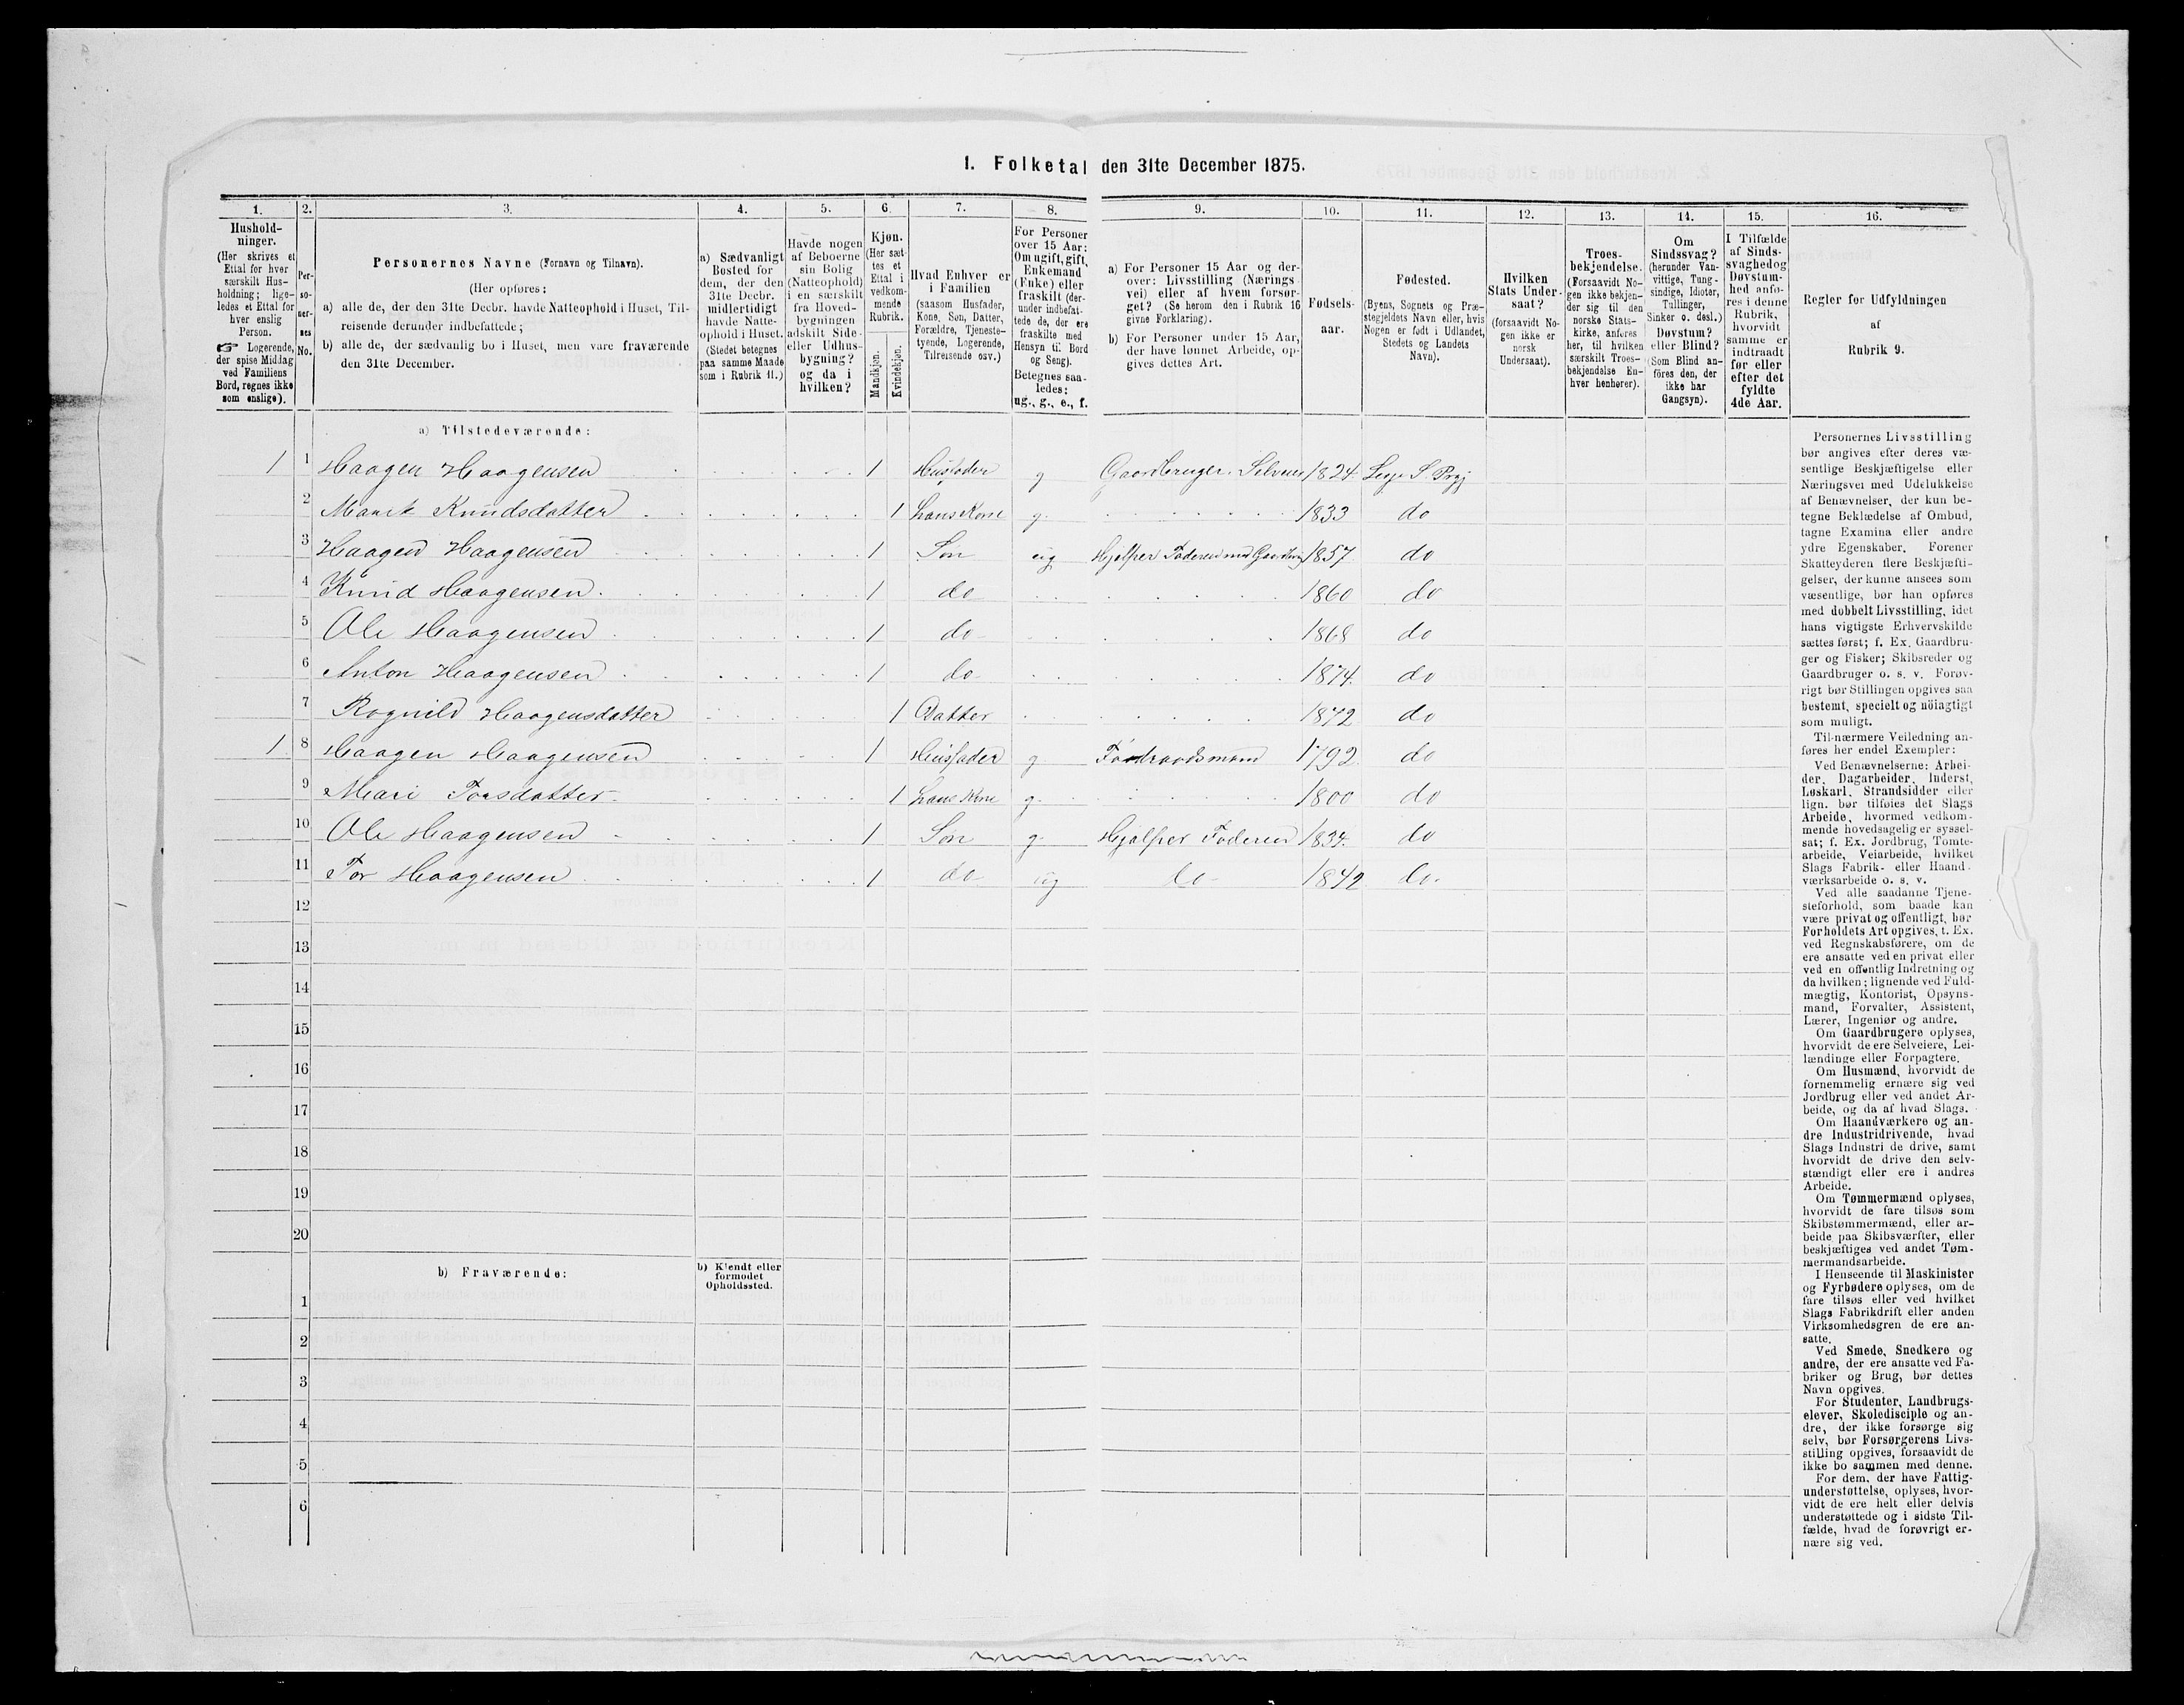 1. Folketal den 31te December 1875.
1. 2. 3. 4. 5. 6. 7. 8. 9. 10. 11. 12. 13. 14. 15. 16.
Hushold-
ninger.
(Her skrives et
Ettal for hver
særskilt Hus-
holdning; lige-
ledes et Ettal for
hver enslig
Person.
☞ Logerende,
der spise Middag
ved Familiens
Bord, regnes ikke
som enslige).
Per-
so-
ner-
nes
No.
Personernes Navne (Fornavn og Tilnavn).
(Her opføres:
a) alle de, der den 31te Decbr. havde Natteophold i Huset, Til-
reisende derunder indbefattede;
b) alle de, der sædvanlig bo i Huset, men vare fraværende
den 31te December.
a) Sædvanligt
Bosted for
dem, der den
31te Decbr.
midlertidigt
havde Natte-
ophold i Huset.
(Stedet betegnes
paa samme Maade
som i Rubrik 11.)
Havde nogen
af Beboerne
sin Bolig
(Natteophold)
i en særskilt
fra Hoved-
bygningen
adskilt Side-
eller Udhus-
bygning?
og da i
hvilken?
Kjøn.
(Her sæt-
tes et
Ettal i
vedkom-
mende
Rubrik.
Mandkjøn.
Kvindekjøn.
Hvad Enhver er
i Familien
(saasom Husfader,
Kone, Søn, Datter,
Forældre, Tjeneste-
tyende, Logerende,
Tilreisende osv.)
For Personer
over 15 Aar:
Om ugift, gift,
Enkemand
(Enke) eller
fraskilt (der-
under indbefat-
tede de, der ere
fraskilte med
Hensyn til Bord
og Seng).
Betegnes saa-
ledes:
ug., g., e., f.
a) For Personer 15 Aar og der-
over: Livsstilling (Nærings-
vei) eller af hvem forsør-
get? (Se herom den i Rubrik 16
givne Forklaring).
b) For Personer under 15 Aar,
der have lønnet Arbeide, op-
gives dettes Art.
Fødsels-
aar.
Fødested.
(Byens, Sognets og Præ-
stegjeldets Navn eller, hvis
Nogen er født i Udlandet,
Stedets og Landets
Navn).
Hvilken
Stats Under-
saat?
(forsaavidt No-
gen ikke er
norsk
Undersaat).
Troes-
bekjendelse.
(Forsaavidt No-
gen ikke bekjen-
der sig til den
norske Stats-
kirke, anføres
her, til hvilken
særskilt Troes-
bekjendelse En-
hver henhører).
Om
Sindssvag?
(herunder Van-
vittige, Tung-
sindige, Idioter,
Tullinger,
Sinker o. desl.)
Døvstum?
eller Blind?
(Som Blind an-
føres den, der
ikke har
Gangsyn).
I Tilfælde
af Sinds-
svaghed og
Døvstum-
hed anfø-
res i denne
Rubrik,
hvorvidt
samme er
indtraadt
før eller
efter det
fyldte
4de Aar.
Regler for Udfyldningen
af
Rubrik 9.
a) Tilstedeværende:
1 1 Haagen Haagensen 1 Husfader g Gaardbruger. Selveier 1824. S. Prgj
2 Marit Knudsdatter 1 hans Kone g. 1833 do
3 Haagen Haagensen 1 Søn ug Hjelper Faderen med 1857 do
4 Knud Haagensen 1 do 1860 do
5 Ole Haagensen 1 do 1868 do
6 Anton Haagensen 1 do 1874. do
7 Rognild Haagensdatter 1 Datter 1872 do
1 8 Haagen Haagensen 1 Husfader g Føderaadsmand 1792 do
9 Mari Torsdatter 1 hans Kone g. 1800 do
10 Ole Haagensen 1 Søn g. Hjælper Faderen 1834. do
11 Tor Haagensen 1 do ug do 1842 do.
12
13
14
15
16
17
18
19
20
b) Fraværende:
b) Kjendt eller
formodet
Opholdssted.
1
2
3
4
5
6
Personernes Livsstilling
bør angives efter deres væ-
sentlige Beskjæftigelse eller
Næringsvei med Udelukkelse
af Benævnelser, der kun be-
tegne Beklædelse af Ombud,
tagne Examina eller andre
ydre Egenskaber. Forener
Skatteyderen flere Beskjæfti-
gelser, der kunne ansees som
væsentlige, bør han opføres
med dobbelt Livsstilling, idet
hans vigtigste Erhvervskilde
sættes først; f. Ex. Gaardbru-
ger og Fisker; Skibsreder og
Gaardbruger o. s. v. Forøv-
rigt bør Stillingen opgives saa
bestemt, specielt og nöiagtigt
som muligt.
Til nærmere Veiledning an-
føres her endel Exempler:
Ved Benævnelserne: Arbei-
der, Dagarbeider, Inderst,
Løskarl, Strandsidder eller
lign. bør tilføies det Slags
Arbeide, hvormed vedkom-
mende hovedsagelig er syssel-
sat; f. Ex. Jordbrug, Tomte-
arbeide, Veiarbeide, hvilket
Slags Fabrik- eller Haand-
værksarbeide o. s. v.
Ved alle saadanne Tjene-
steforhold, som baade kan
være privat og offentligt, bør
Forholdets Art opgives, t. Ex.
ved Regnskabsførere, om de
ere ansatte ved en privat eller
ved en offentlig Indretning og
da hvilken; lignende ved Fuld-
mægtig, Kontorist, Opsyns-
mand, Forvalter, Assistent,
Lærer, Ingeniør og andre.
Om Gaardbrugere oplyses,
hvorvidt de ere Selveiere, Lei-
lændinge eller Forpagtere.
Om Husmænd, hvorvidt de
fornemmelig ernære sig ved
Jordbrug eller ved andet Ar-
beide, og da af hvad Slags.
Om Haandværkere og an-
dre Industridrivende, hvad
Slags Industri de drive, samt
hvorvidt de drive den selv-
stændigt eller ere i andres
Arbeide.
Om Tømmermænd oplyses,
hvorvidt de fare tilsøs som
Skibstømmermænd, eller ar-
beide paa Skibsværfter, eller
beskjæftiges ved andet Tøm-
mermandsarbeide.
I Henseende til Maskinister
og Fyrbødere oplyses, om de
fare tilsøs eller ved hvilket
Slags Fabrikdrift eller anden
Virksomhedsgren de ere an-
satte.
Ved Smede, Snedkere og
andre, der ere ansatte ved Fa-
briker og Brug, bør dettes
Navn opgives.
For Studenter, Landbrugs-
elever, Skoledisciple og an-
dre, der ikke forsørge sig
selv, bør Forsørgerens Livs-
stilling opgives, forsaavidt de
ikke bo sammen med denne.
For dem, der have Fattig-
understøttelse, oplyses, hvor-
vidt de ere helt eller delvis
understøttede og i sidste Til-
fælde, hvad de forøvrigt er-
nære sig ved.